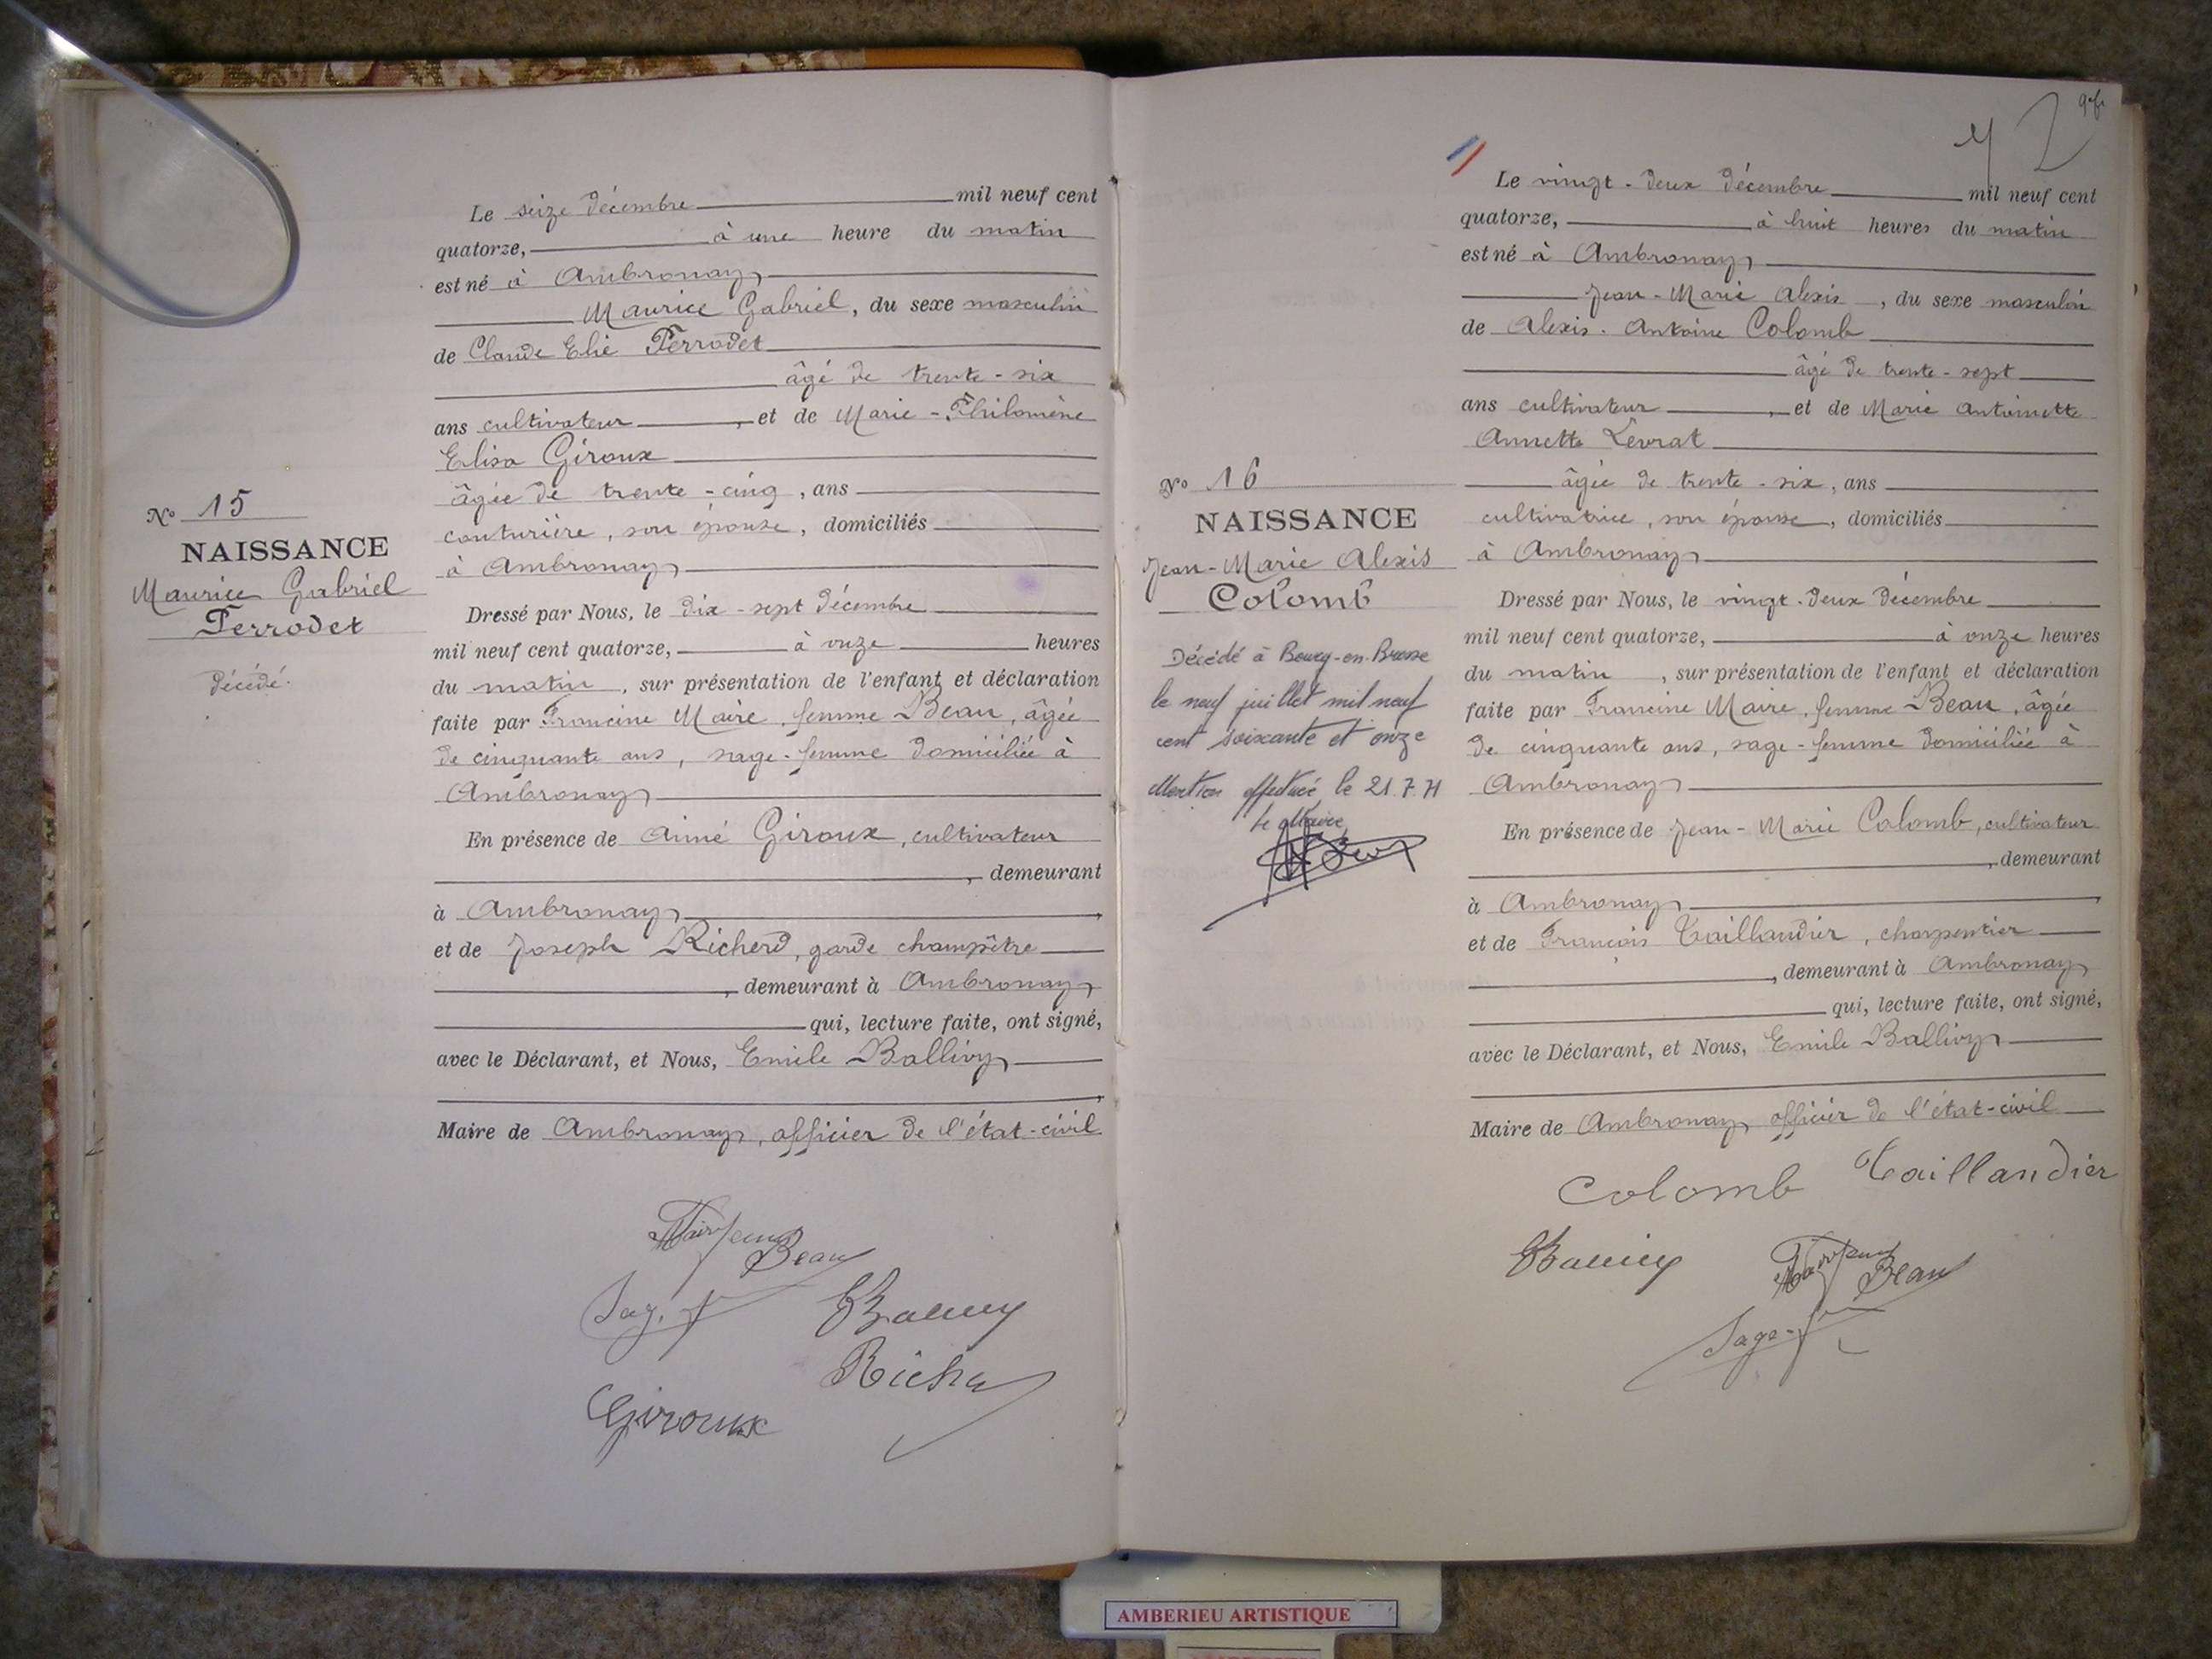 Le seize décembre mil neuf cent
quatorze, à une heure du matin
est né à Ambronay
Maurice Gabriel, du sexe masculin
de Claude Elie Perrodet
âgé de trente-six
ans cultivateur, et de Marie-Philomène
Elisa Giroux
âgée de trente-cinq, ans
couturière, son épouse, domiciliés
à Ambronay
N° 15
NAISSANCE
Maurice Gabriel
Perrodet
décédé.
Dressé par Nous, le dix-sept décembre
mil neuf cent quatorze, à onze heures
du matin, sur présentation de l'enfant et déclaration
faite par Francine Maire, femme Beau, âgée
de cinquante ans, sage-femme domiciliée à
Ambronay
En présence de Aimé Giroux, cultivateur
, demeurant
à Ambronay
et de Joseph Richerd, garde champêtre
, demeurant à Ambronay
qui, lecture faite, ont signé,
avec le Déclarant, et Nous, Emile Ballivy
Maire de Ambronay, officier de l'état-civil
Beau
Giroux
2
Le vingt-deux décembre mil neuf cent
quatorze, à huit heures du matin
est né à Ambronay
Jean-Marie Alexis, du sexe masculin
de Alexis-Antoine Colomb
âgé de trente-sept
ans cultivateur, et de Marie Antoinette
Annette Levrat
âgée de trente-six, ans
cultivatrice, son épouse, domiciliés
à Ambronay
N° 16
NAISSANCE
Jean-Marie Alexis
Colomb
Décédé à Bourg-en-Bresse
le neuf juillet mil neuf
cent soixante et onze
Mention effectuée le 21.7.71
Le Maire,
Dressé par Nous, le vingt-deux décembre
mil neuf cent quatorze, à onze heures
du matin, sur présentation de l'enfant et déclaration
faite par Francine Maire, femme Beau, âgée
de cinquante ans, sage-femme domiciliée à
Ambronay
En présence de Jean-Marie Colomb, cultivateur
, demeurant
à Ambronay
et de François Taillandier, charpentier
, demeurant à Ambronay
qui, lecture faite, ont signé,
avec le Déclarant, et Nous, Emile Ballivy
Maire de Ambronay officier de l'état-civil
Colomb Taillandier
Beau
Sage-f
AMBERIEU ARTISTIQUE